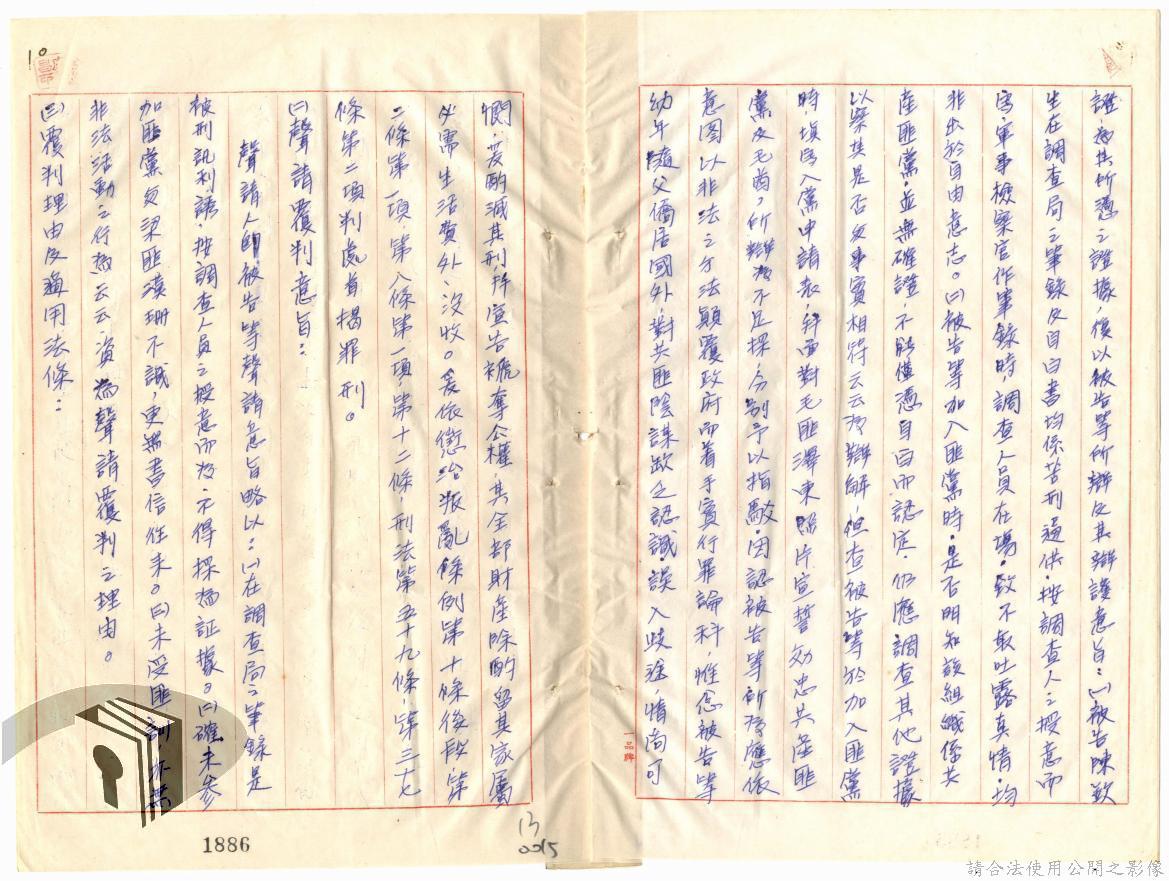 證,為其所憑之證據,復以被告等所辯及其辯護意旨:(一)被告陳欽
生在調查局之筆錄及自白書均係苦刑逼供,按調查人之授意而
寫,軍事檢察官作筆錄時,調查人員在場,致不敢吐露真情,均
非出於自由意志。(二)被告等加入匪黨時,是否明知該組織係共
產匪黨,並無確證,不能僅憑自白而認定,仍應調查其他證據
以察其是否與事實相符云云為辯解,但查被告等於加入匪黨
時,填寫入黨申請表,并面對毛匪澤東照片宣誓効忠共產匪
黨及毛酋,所辯殊不足採,分別予以指駁,因認被告等所為應依
意圖以非法之方法顛覆政府而着手實行罪論科,惟念被告等
幼年隨父僑居國外,對共匪陰謀缺乏認識,誤入歧途,情尚可
憫,爰酌減其刑,并宣告褫奪公權,其全部財產除酌留其家屬
必需生活費外,沒收。爰依懲治叛亂條例第十條後段,第
二條第一項,第八條第一項,第十二條,刑法第五十九條,第三七
條第二項判處首揭罪刑。
(二)聲請覆判意旨:
聲請人即被告等聲請意旨略以:(一)在調查局之筆錄是
被刑訊利誘,按調查人員之授意而為,不得採為証據。(二)確未參
加匪黨與梁匪漢珊不識,更無書信往來。(三)未受匪訓,亦無
非法活動之行為云云,資為聲請覆判之理由。
(三)覆判理由及適用法條:
10
1886
13
0015
一品牌
請合法使用公開之影像